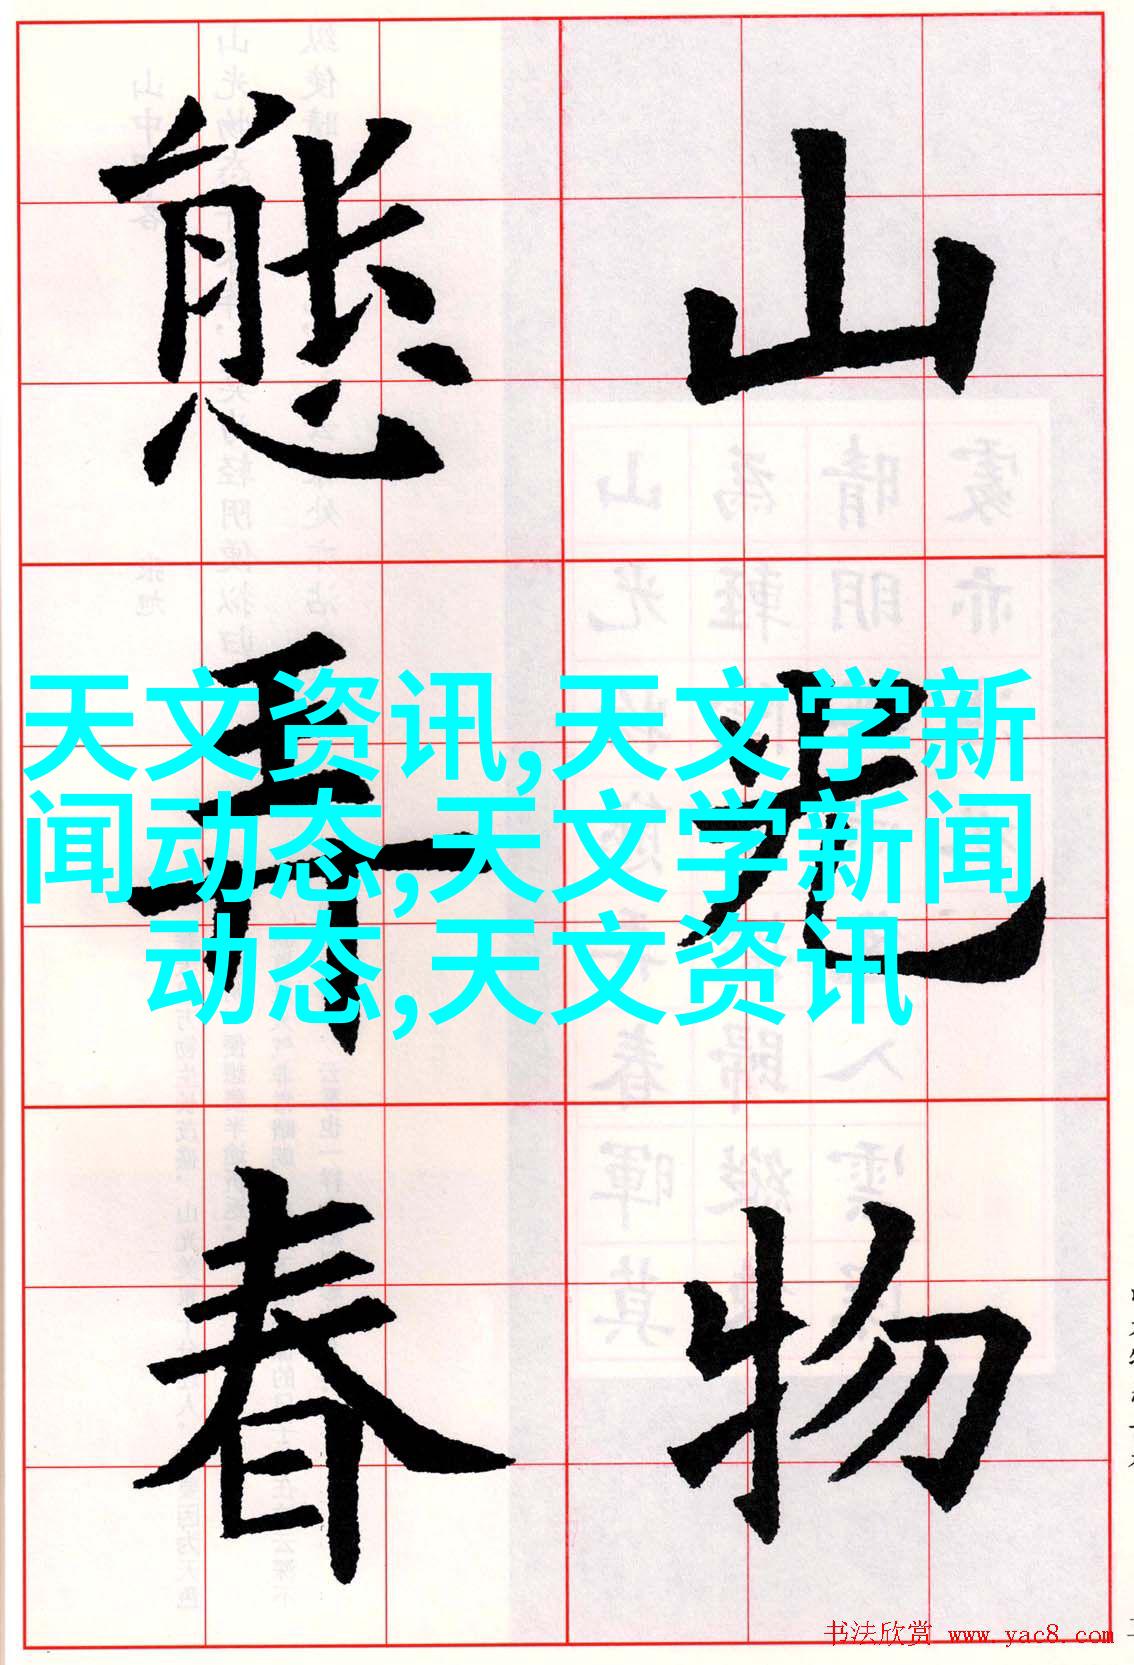 山光物
態弄春
天文资讯,天文学新
闻动态,天文学新闻
动态,天文资讯
书法欣赏 www.yac8.com